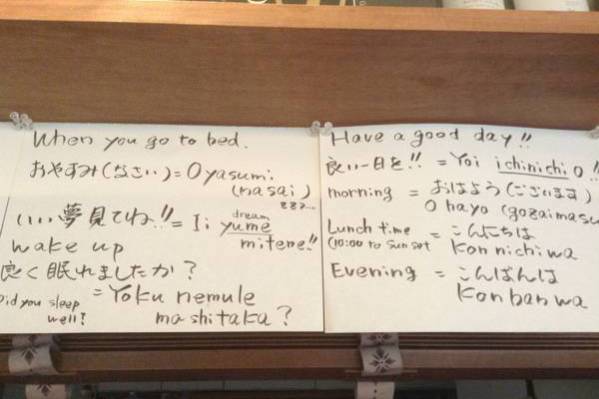 When you go to bed.
おやすみ(なさい)=Oyasumi
(nasai)
ZZZ...
いい夢見てね!!=Ii yume
dream
mitene!!
wake up
良く眠れましたか?
Did you sleep well?
=Yoku nemule
mashitaka?
Have a good day!!
良い一日を!!=Yoi ichinichi o!!
morning = おはよう(ございます)
Ohayo (gozaimasu
Lunch time = こんにちは
(10:00 to sunset Konnichiwa
Evening = こんばんは
Konbanwa